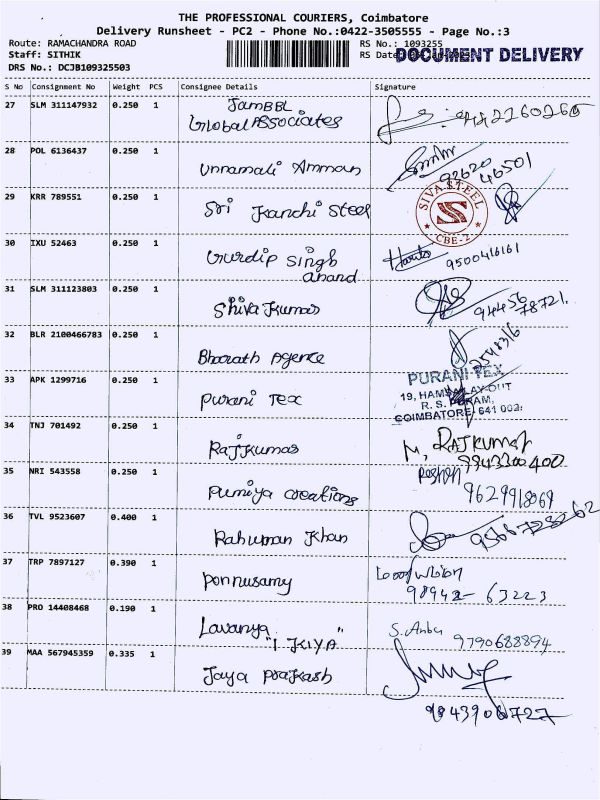 THE PROFESSIONAL COURIERS, Coimbatore
Delivery Runsheet - PC2 - Phone No.:0422-3505555 - Page No.:3
Route: RAMACHANDRA ROAD
RS No.: 1093255
Staff: SITHIK
RS Date
DOCUMENT DELIVERY
DRS No.: DCJB109325503
S No Consignment No Weight PCS Consignee Details Signature
27 SLM 311147932 0.250 1 JamBBL
Global Associates
28 POL 6136437 0.250 1 Unnamali Amman 92620
46501
29 KRR 789551 0.250 1 Sri Kanchi Steel SIVA STEEL
CBE-2
30 IXU 52463 0.250 1 Gurdip Singh 9500416161
anand
31 SLM 311123803 0.250 1 Shiva Kumar 94456
78721
32 BLR 2100466783 0.250 1 Bharath Agence 2548316
33 APK 1299716 0.250 1 Purani Tex PURANI TEX
19, HAMSA LAY-OUT
R. S. PURAM,
COIMBATORE- 641 002.
34 TNJ 701492 0.250 1 RajKumar M. RAJKUMAR
9943300400
35 NRI 543558 0.250 1 Pumiya creations
9629918069
36 TVL 9523607 0.400 1 Rahuman Khan
37 TRP 7897127 0.390 1 Ponnusamy
98942- 63223
38 PRO 14408468 0.190 1 Lavanya S. Anbu
"I KIYA" 9790688894
39 MAA 567945359 0.335 1 Jaya Prakash
9843906727